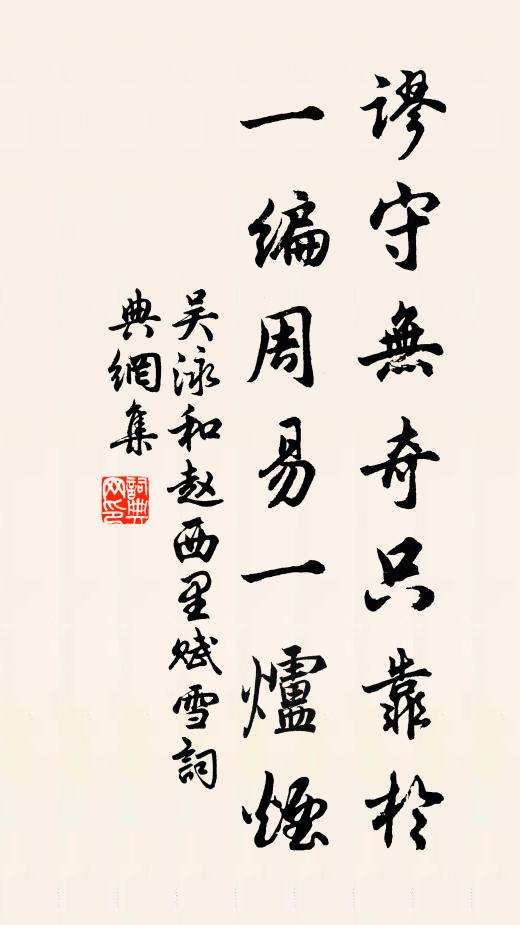 謬守無奇只靠於
一編周易一爐煙
吴泳和赵西里赋雪詞
典網集
詞典网印